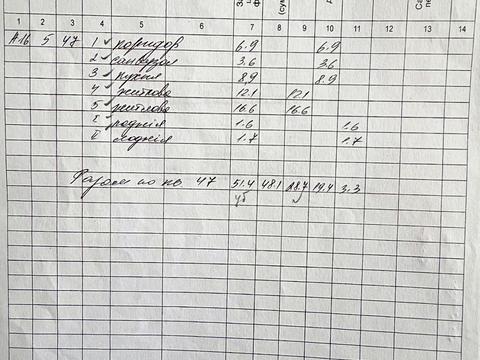 1 2 3 4 5 6 7 8 9 10 11 12 13 14
А-16 5 47 1 коридор 6.9 6.9
2 санвузол 3.6 3.6
3 кухня 8.9 8.9
4 житлова 12.1 12.1
5 житлова 16.6 16.6
I лоджія 1.6 1.6
II лоджія 1.7 1.7
Разом по кв 47 51.4 48.1 28.7 19.4 3.3